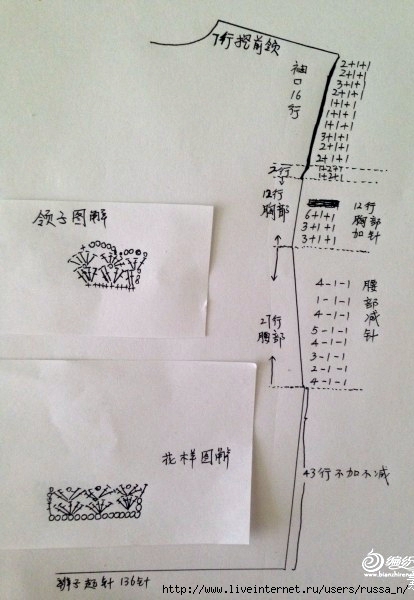 7行挖前领
袖口16行
2+1+1
2+1+1
3+1+1
2+1+1
1+1+1
1+1+1
1+1+1
3+1+1
2+1+1
2+1+1
1+2+1
1+2+1
2行
12行胸部
6+1+1
3+1+1
3+1+1
12行胸部加针
领子图解
27行胸部
4-1-1
1-1-1
4-1-1
5-1-1
4-1-1
3-1-1
2-1-1
4-1-1
腰部减针
花样图解
43行不加不减
辫子起针136针
编织
www.bianzhiren
http://www.liveinternet.ru/users/russa_n/